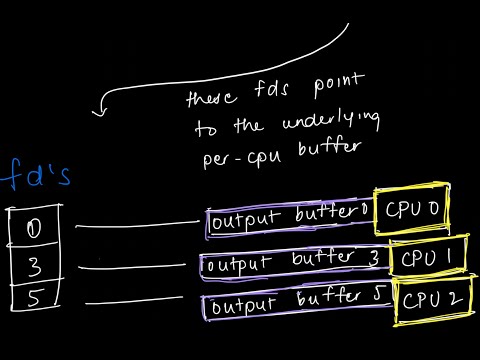 these fds point
to the underlying
per-cpu buffer
fd's
0 output buffer 0 CPU 0
3 output buffer 3 CPU 1
5 output buffer 5 CPU 2